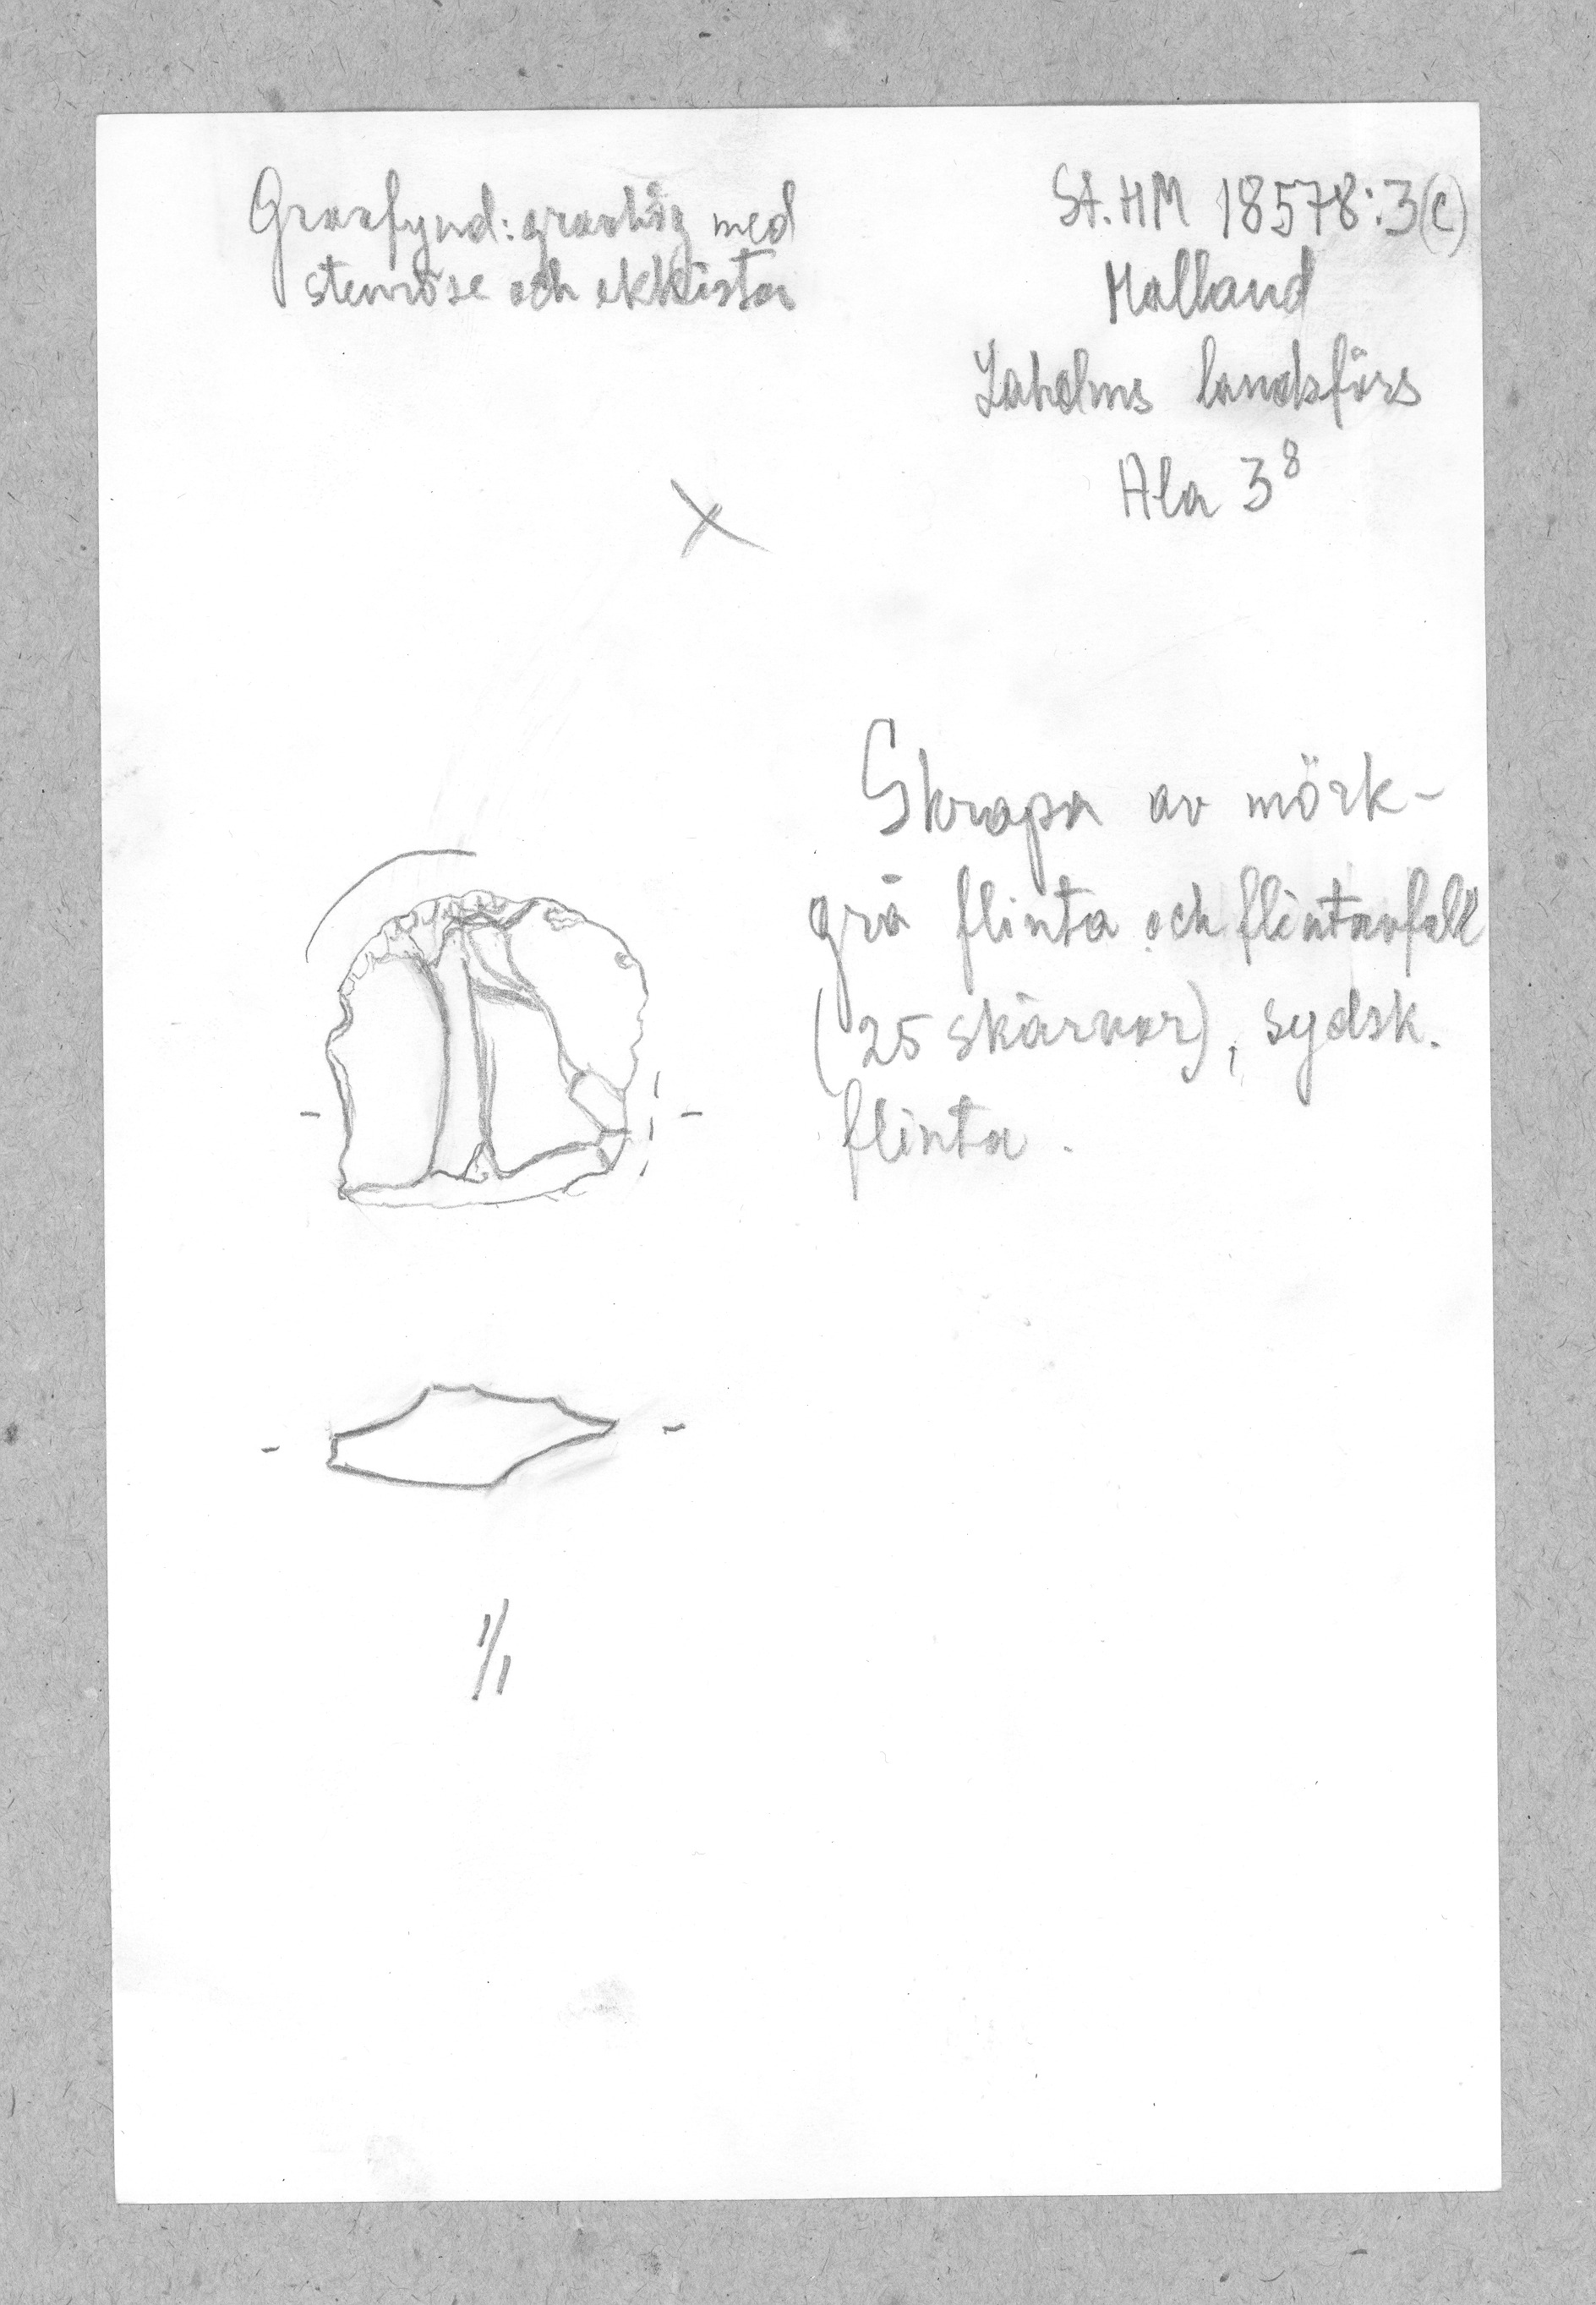 Gravfynd: gravhög med
stenröse och ekkista
St. HM 18578:3(c)
Halland
Laholms landsförs
Ala 3⁸
X
Skrapa av mörk-
grå flinta och flintavfall
(25 skärvor), sydsk.
flinta.
1/1